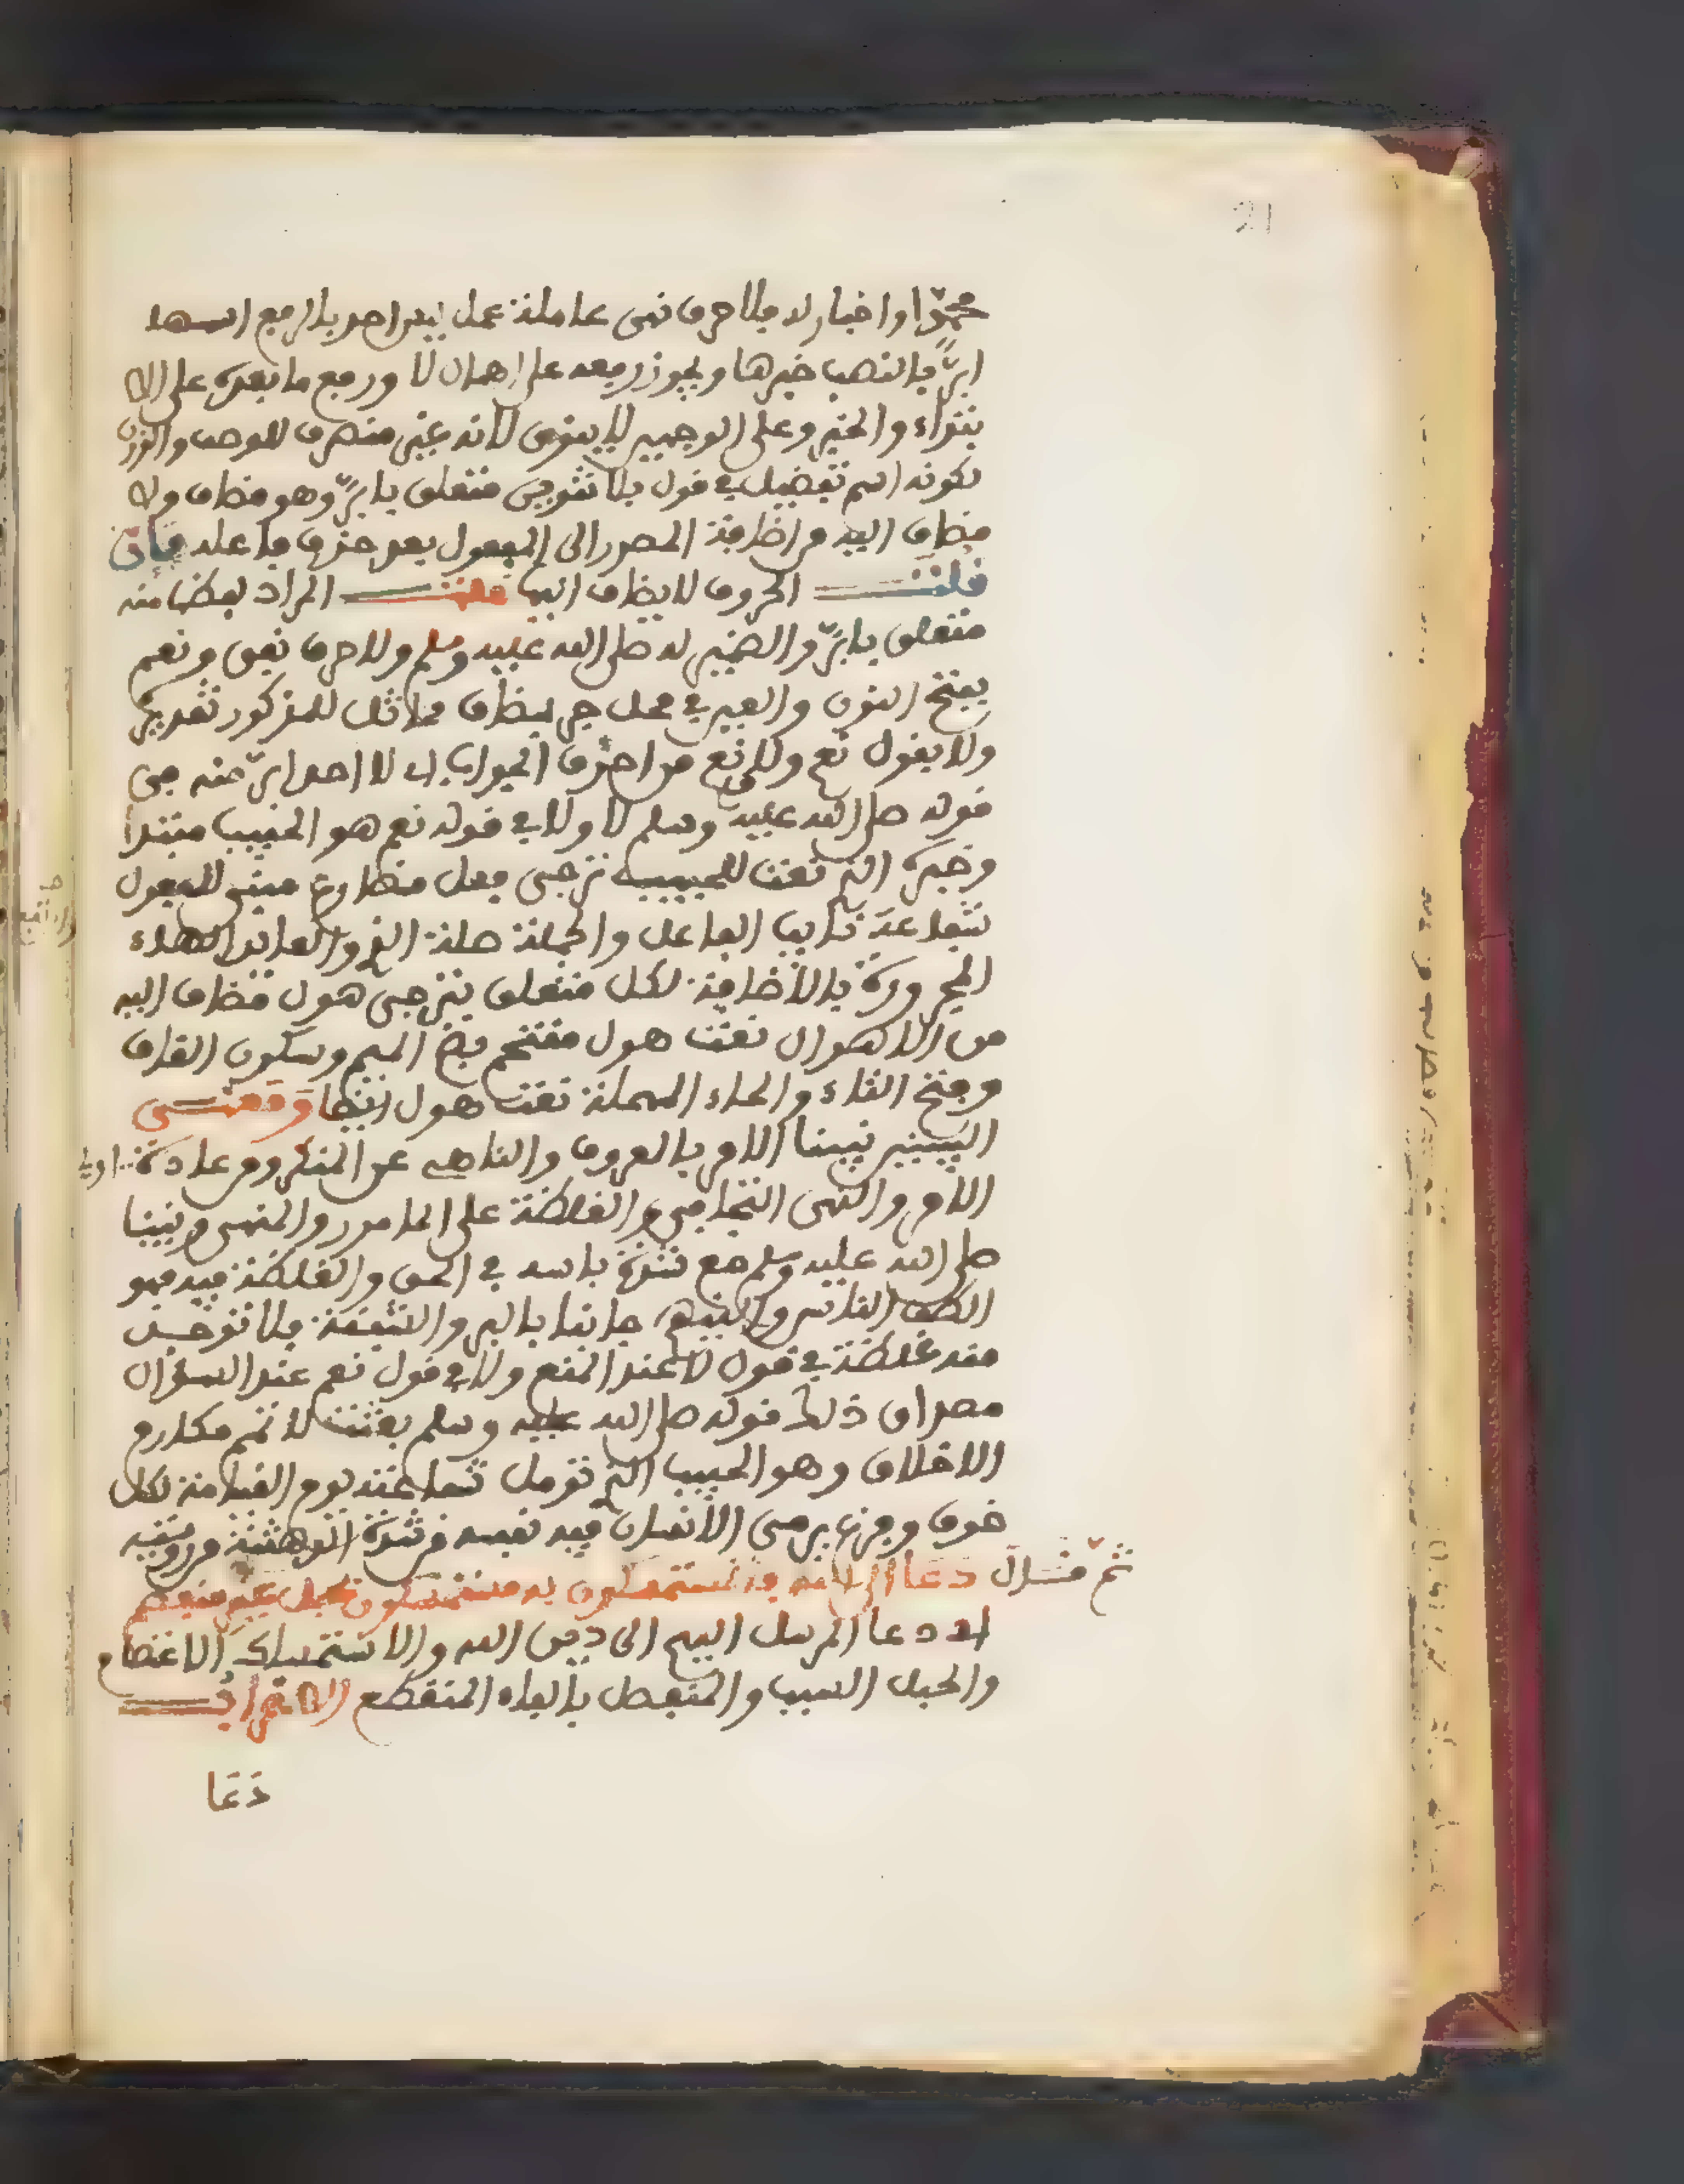 21
محمدا واخبار له فلا حرف نفى عاملة عمل ليس احد بالرفع اسمها
ابرّ بالنصب خبرها ويجوز رفعه على اهمال لا ورفع ما بعدها على الا
بتداء والخبر وعلى الوجهين لا ينون لانه غير منصرف للوصف والوزن
لكونه اسم تفضيل في قول بلا تنوين متعلق بابرّ وهو مضاف ولا
مضاف اليه من اضافة المصدر الى المفعول بعد حذف فاعله فان
قلت الحروف لا يضاف اليها قلت المراد لفظها منه
متعلق بابرّ والضمير له صلى الله عليه وسلم ولا حرف نفى ونعم
بفتح النون والعين في محل جر بمضاف مماثل للمذكور تقديره
ولا بقول نعم ونعم من احرف الجواب اى لا احد ابرّ منه في
قوله صلى الله عليه وسلم لا ولا في قوله نعم هو الحبيب مبتدا
وخبره الذي نعت للحبيب ترجى فعل مضارع مبنى للمفعول
شفاعته نايب الفاعل والجملة صلة الذي والعائد الهاء
المجرورة بالاضافة لكل متعلق بترجى هول مضاف اليه
من الاهوال نعت هول مقتحم بضم الميم وسكون القاف
وفتح التاء والحاء المهملة نعت هول ايضا ومعنى
البيتين نبينا الامر بالمعروف والناهى عن المنكر ومن عادة اولى
الامر والنهى التجافى والغلظة على المامور والمنهى ونبينا
صلى الله عليه وسلم مع شدة باسه في الحق والغلظة فيه فهو
الطف الناس والينهم جانبا بالبر والشفقة فلا توجد
منه غلظة في قول لا عند المنع ولا في قول نعم عند السؤال
مصداق ذلك قوله صلى الله عليه وسلم بعثت لاتمم مكارم
الاخلاق وهو الحبيب الذي تؤمل شفاعته يوم القيامة لكل
خوف وفزع يرمى الانسان فيه نفسه من شدة الدهشة من روعته
ثم قال دعا الى الله فالمستمسكون به مستمسكون بحبل غير منفصم
اى دعا المرسل اليهم الى دين الله والاستمساك الاعتصام
والحبل السبب والمنفصل بالفاء المنقطع الاعراب
دعا